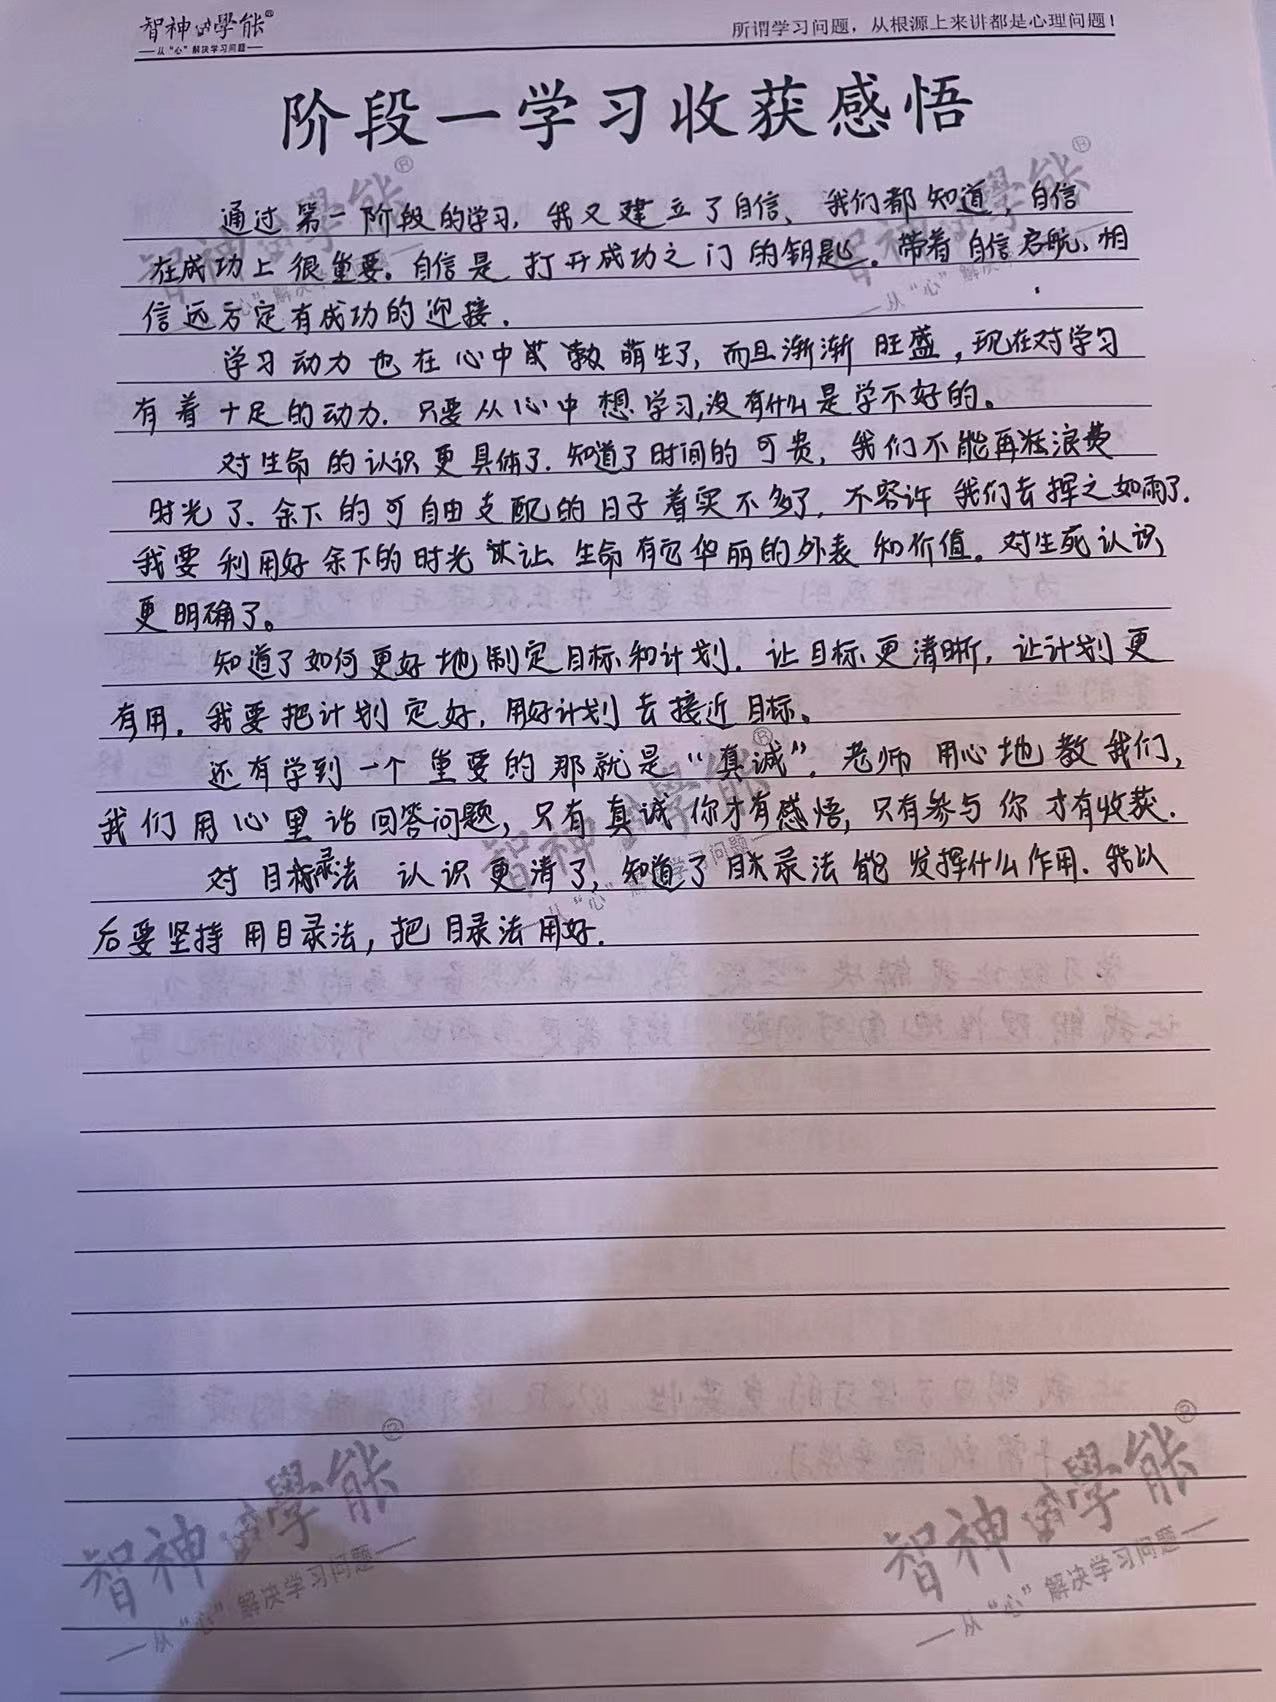 智神心學能®
—从“心”解决学习问题—
所谓学习问题，从根源上来讲都是心理问题！
阶段一学习收获感悟
通过第一阶段的学习，我又建立了自信、我们都知道，自信
在成功上很重要。自信是打开成功之门的钥匙。带着自信启航、相
信远方定有成功的迎接.
学习动力也在心中萌生了，而且渐渐旺盛，现在对学习
有着十足的动力. 只要从心中想学习,没有什么是学不好的。
对生命的认识更具体了. 知道了时间的可贵，我们不能再浪费
时光了. 余下的可自由支配的日子着实不多了，不容许我们去挥之如雨了.
我要利用好余下的时光让生命有它华丽的外表和价值。对生死认识
更明确了。
知道了如何更好地制定目标和计划. 让目标更清晰，让计划更
有用. 我要把计划定好，用好计划去接近目标。
还有学到一个重要的那就是“真诚”. 老师用心地教我们，
我们用心里话回答问题，只有真诚你才有感悟，只有参与你才有收获.
对目录法认识更清了，知道了目录法能发挥什么作用. 我以
后要坚持用目录法，把目录法用好.
智神心學能®
—从“心”解决学习问题—
智神心學能®
—从“心”解决学习问题—